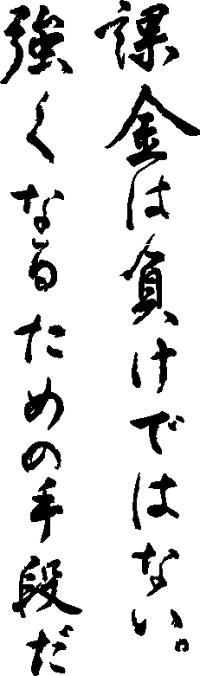 課金は負けではない。
強くなるための手段だ